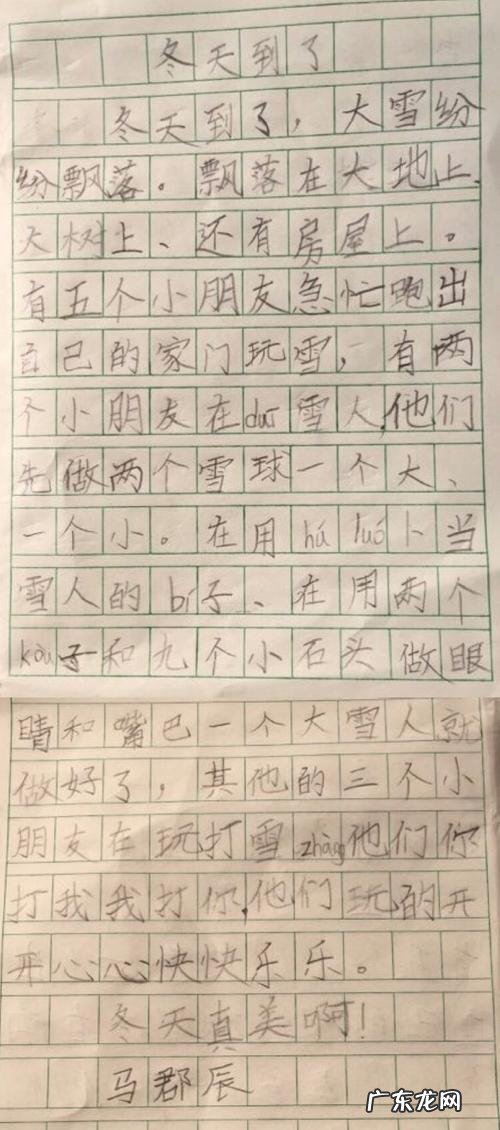 冬天到了
冬天到了，大雪纷
纷飘落。飘落在大地上、
大树上、还有房屋上。
有五个小朋友急忙跑出
自己的家门玩雪，有两
个小朋友在duī雪人,他们
先做两个雪球一个大、
一个小。在用hú luó卜当
雪人的bí子、在用两个
kòu子和九个小石头做眼
睛和嘴巴一个大雪人就
做好了，其他的三个小
朋友在玩打雪zhàng他们你
打我我打你,他们玩的开
开心心快快乐乐。
冬天真美啊！
马郡辰
广东龙网